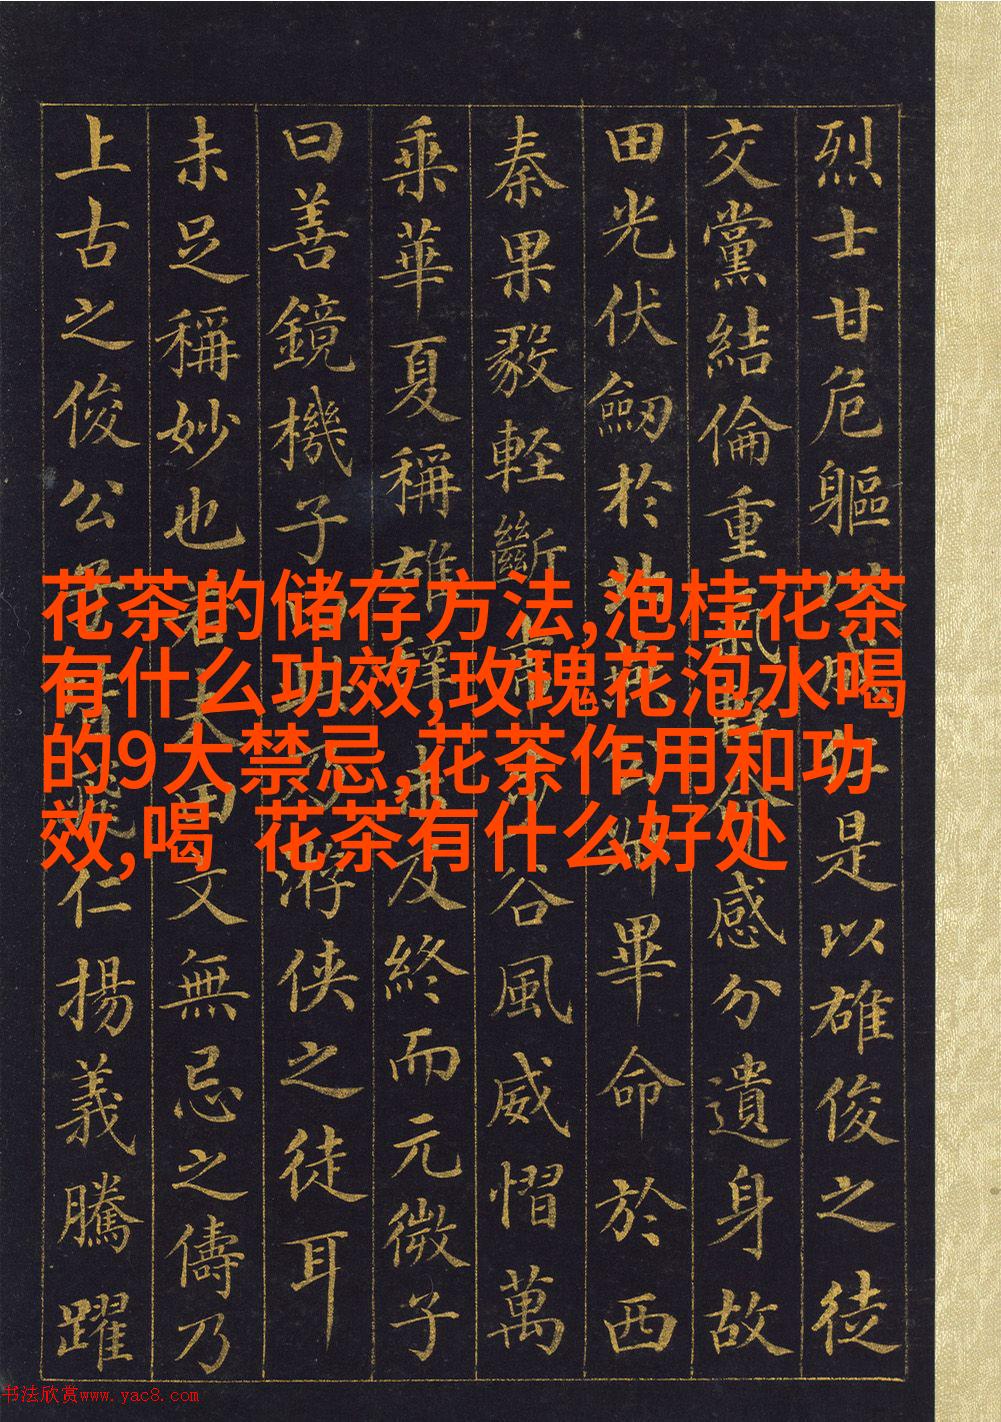 烈士甘危軀是以雄俊之徒
交黨結倫重氣輕命感分遺身故
田光伏劒於北燕公叔畢命於西
秦果毅輕斷虎步谷風威慴萬
乘華夏稱雄辭未及終而元微子
曰善鏡機子曰此乃游俠之徒耳
未足稱妙也若夫田文無忌之儔乃
上古之俊公子也皆飛仁揚義騰躍
花茶的储存方法,泡桂花茶
有什么功效,玫瑰花泡水喝
的9大禁忌,花茶作用和功
效,喝 花茶有什么好处
书法欣赏www.yac8.com